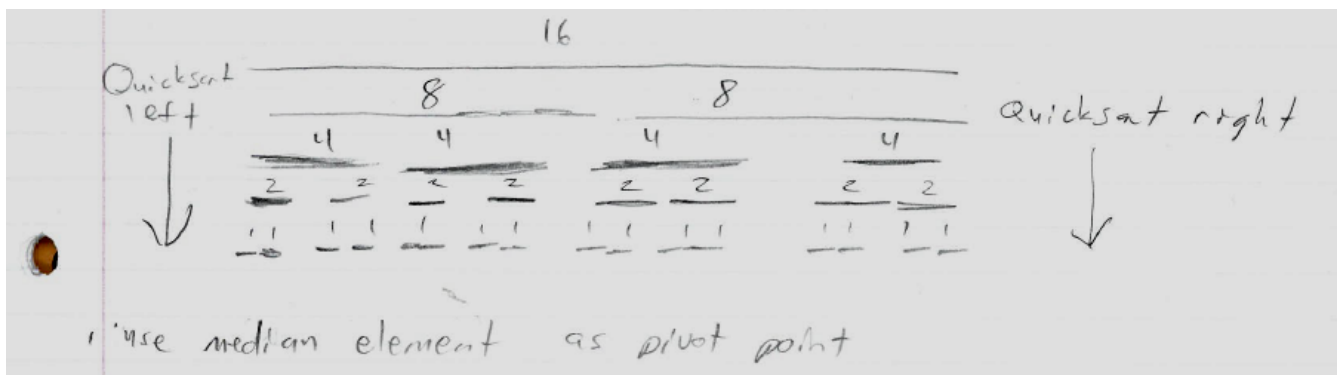 16
Quicksort left
8 8
Quicksort right
4 4 4 4
2 2 2 2 2 2 2 2
1 1 1 1 1 1 1 1 1 1 1 1 1 1 1
use median element as pivot point